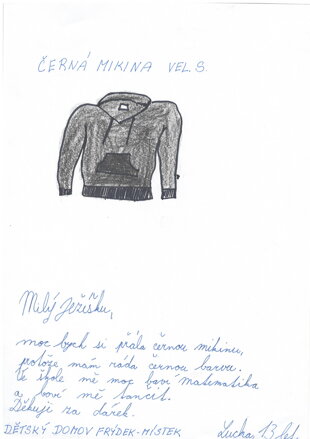 ČERNÁ MIKINA VEL. S.
Milý Ježíšku,
moc bych si přála černou mikinu,
protože mám ráda černou barvu.
Ve škole mě moc baví matematika
a baví mě tančit.
Děkuji za dárek.
DĚTSKÝ DOMOV FRÝDEK-MÍSTEK
Lucka 13 let.